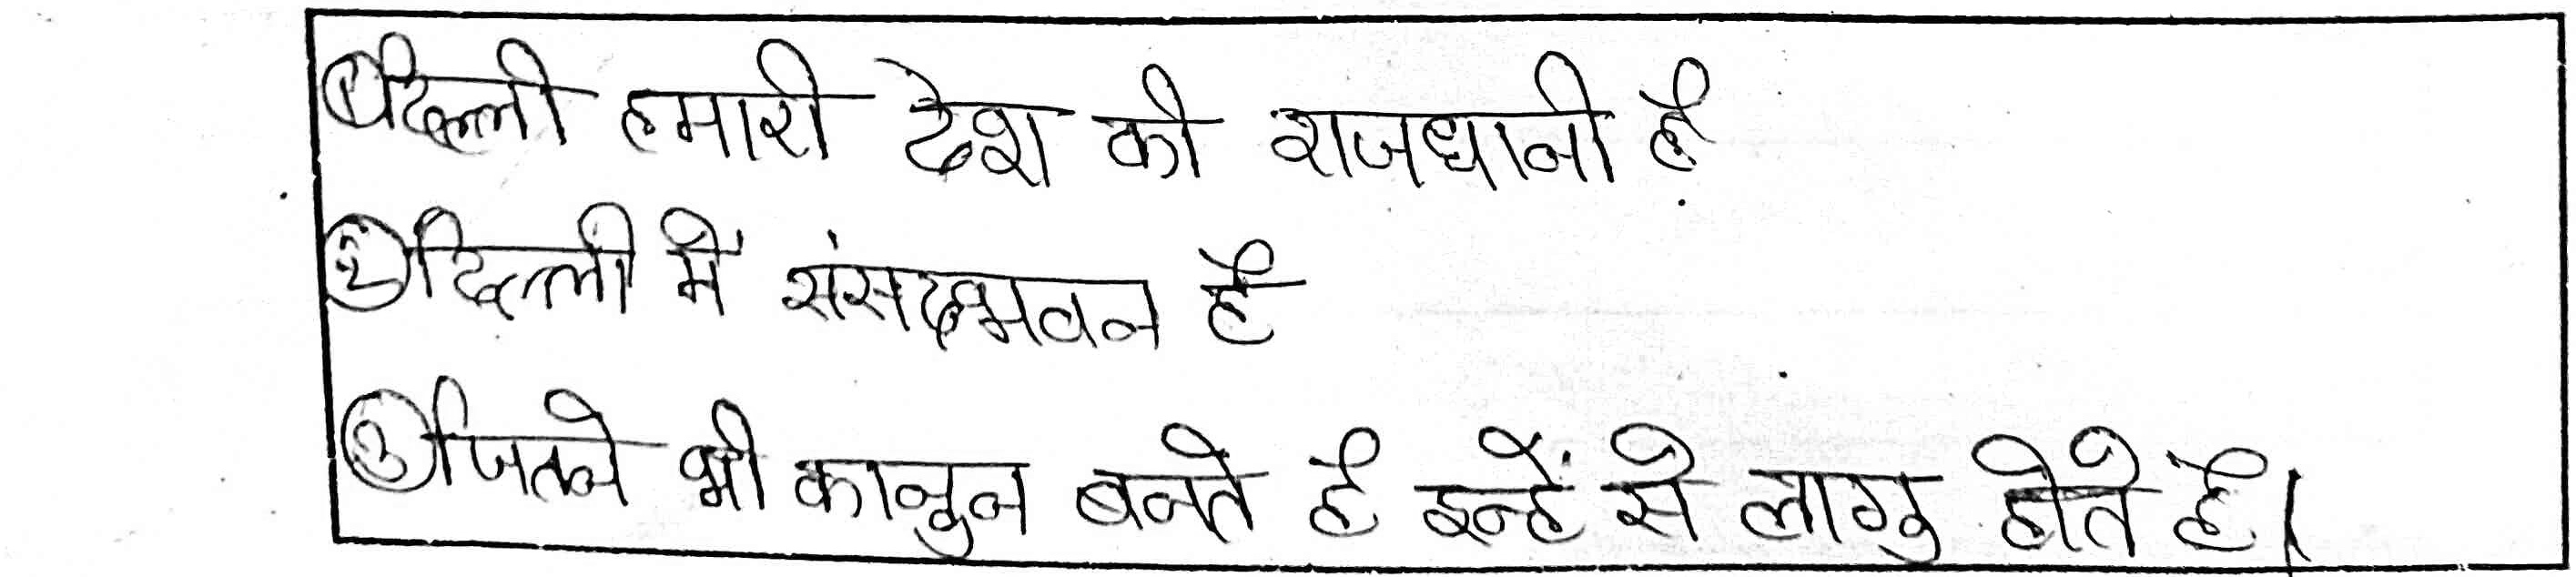 ① दिल्ली हमारी देश की राजधानी है
② दिल्ली में संसदभवन है
③ जितने भी कानुन बनते है इन्हें से लागु होते है।